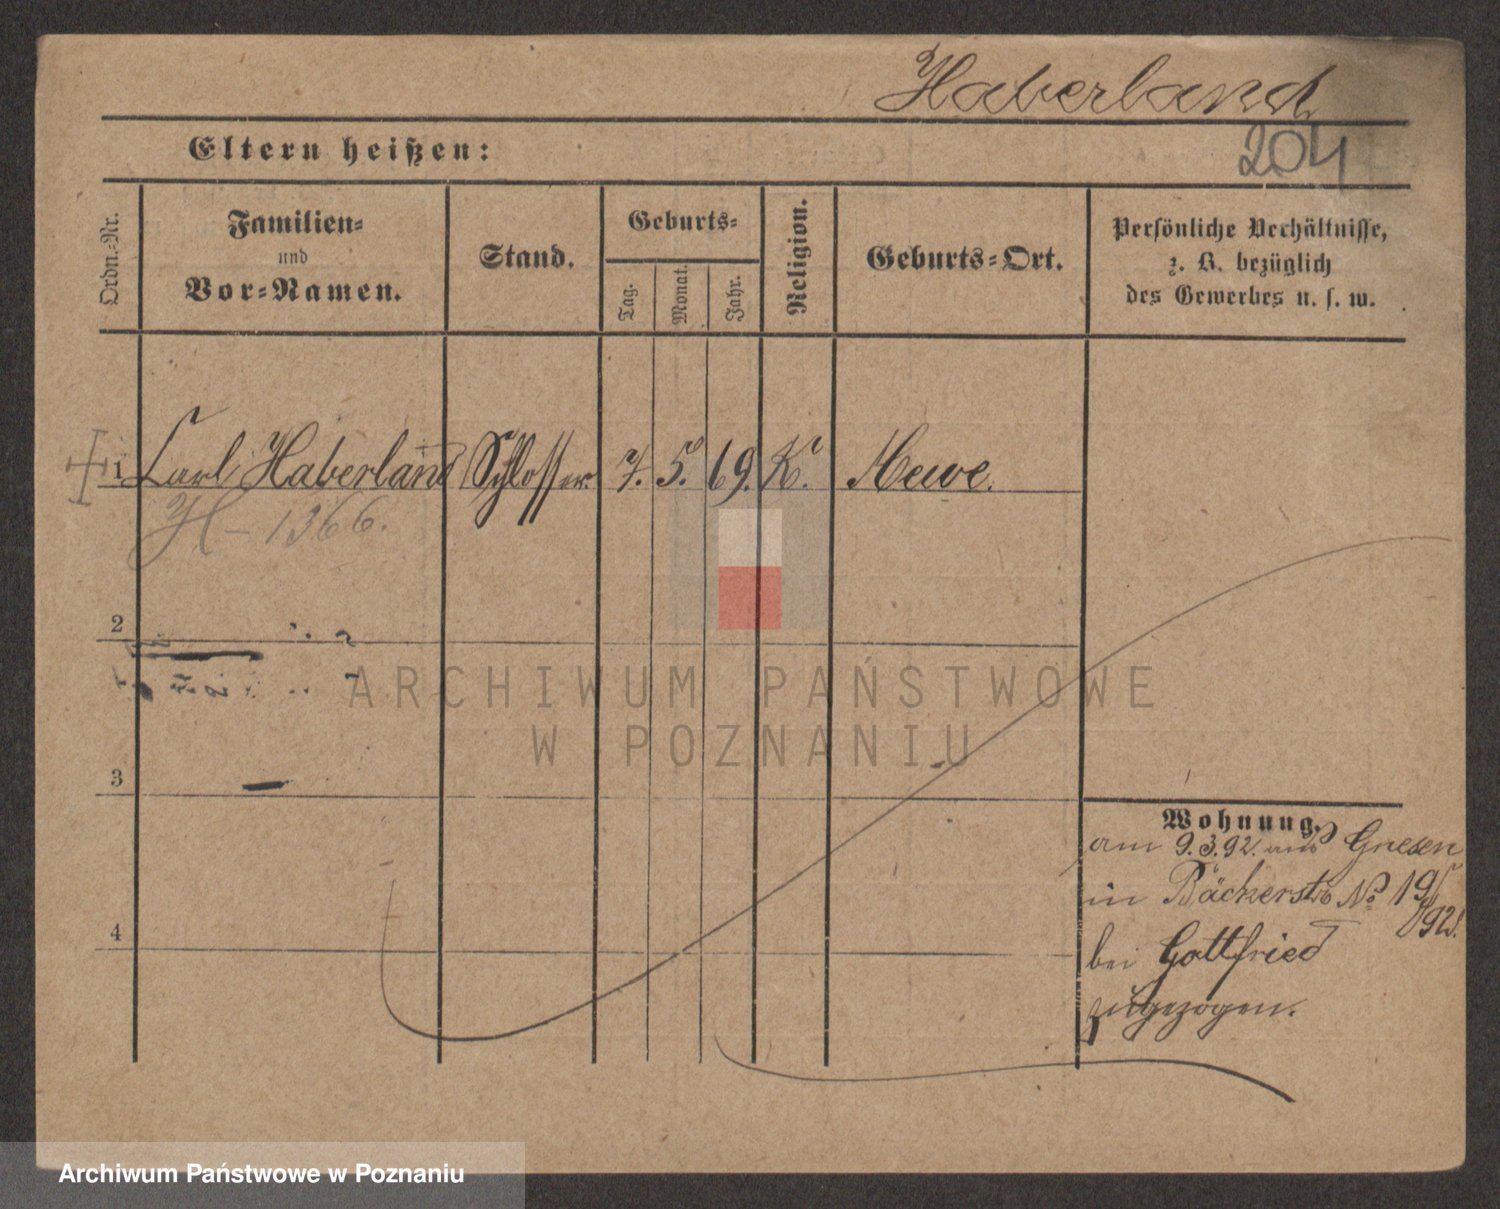 Haberland
204
Eltern heißen:
Ordn.=Nr.
Familien=
und
Vor=Namen.
Stand.
Geburts=
Tag.
Monat.
Jahr.
Religion.
Geburts=Ort.
Persönliche Verhältnisse,
z. B. bezüglich
des Gewerbes u. s. w.
1 Carl Haberland Schlosser 7. 5. 69. K. Mewe.
H - 1366.
2
3
4
Wohnung.
am 9.3.92. aus Gnesen
in Bäckerstr No 19
92.
bei Gottfried
zugezogen.
ARCHIWUM PAŃSTWOWE
W POZNANIU
Archiwum Państwowe w Poznaniu